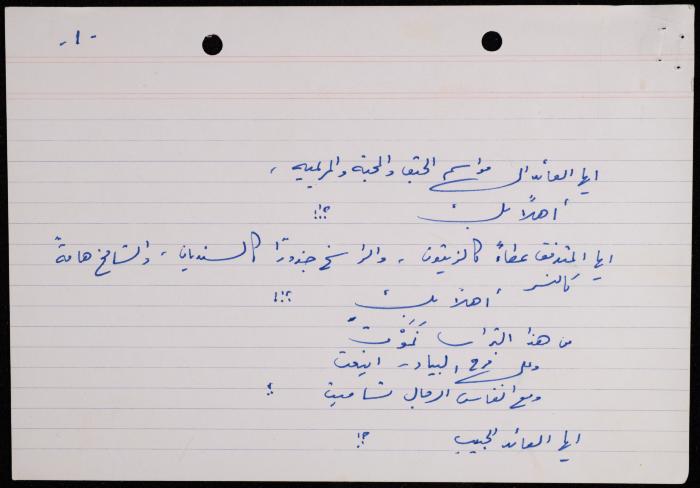 - ١ -
ايها العائد الى مواسم الحبق والمحبة والمريمية ،
أهلاً بك !!؟
ايها المتدفق عطاءً كالزيتون ، والراسخ جذورًا كالسنديان ، والشامخ هامةً
كالنسر
أهلاً بك !!؟
من هذا التراب نَمَوْتَ
وعلى فرح البيادر اينعت
ومع انفاس الرجال تساميت ؛
ايها العائد الحبيب !؟